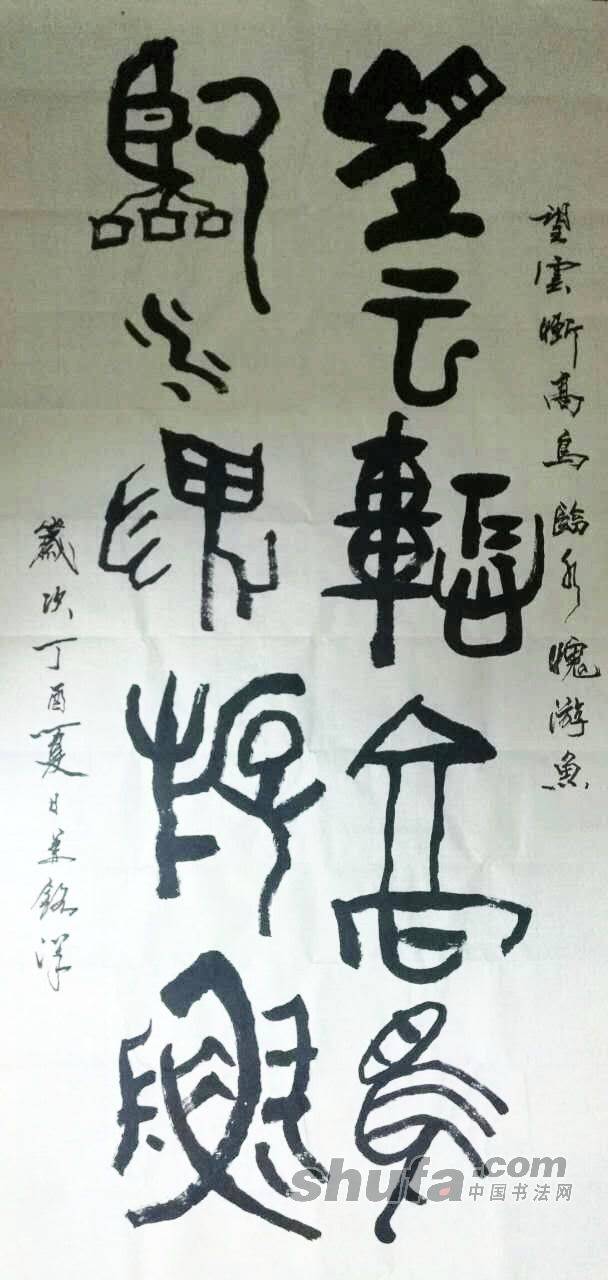 望雲慚高鳥臨水愧游魚
望云慚高鳥
臨水愧游魚
歲次丁酉夏日銘洋
shufa.com
中国书法网